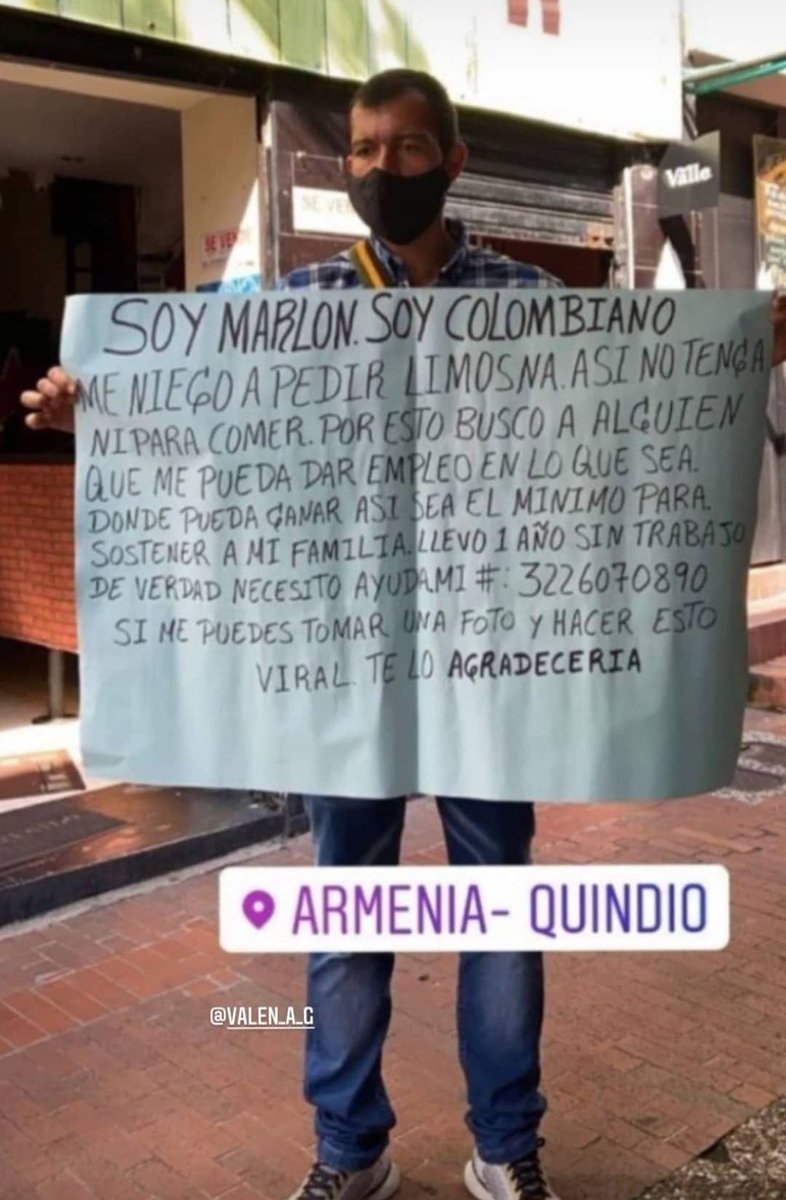 Valle
SE VENDE
SOY MARLON. SOY COLOMBIANO
ME NIEGO A PEDIR LIMOSNA. ASI NO TENGA
NI PARA COMER. POR ESTO BUSCO A ALGUIEN
QUE ME PUEDA DAR EMPLEO EN LO QUE SEA.
DONDE PUEDA GANAR ASI SEA EL MINIMO PARA.
SOSTENER A MI FAMILIA. LLEVO 1 AÑO SIN TRABAJO
DE VERDAD NECESITO AYUDA.MI #: 3226070890
SI ME PUEDES TOMAR UNA FOTO Y HACER ESTO
VIRAL. TE LO AGRADECERIA
ARMENIA- QUINDIO
@VALEN_A_G